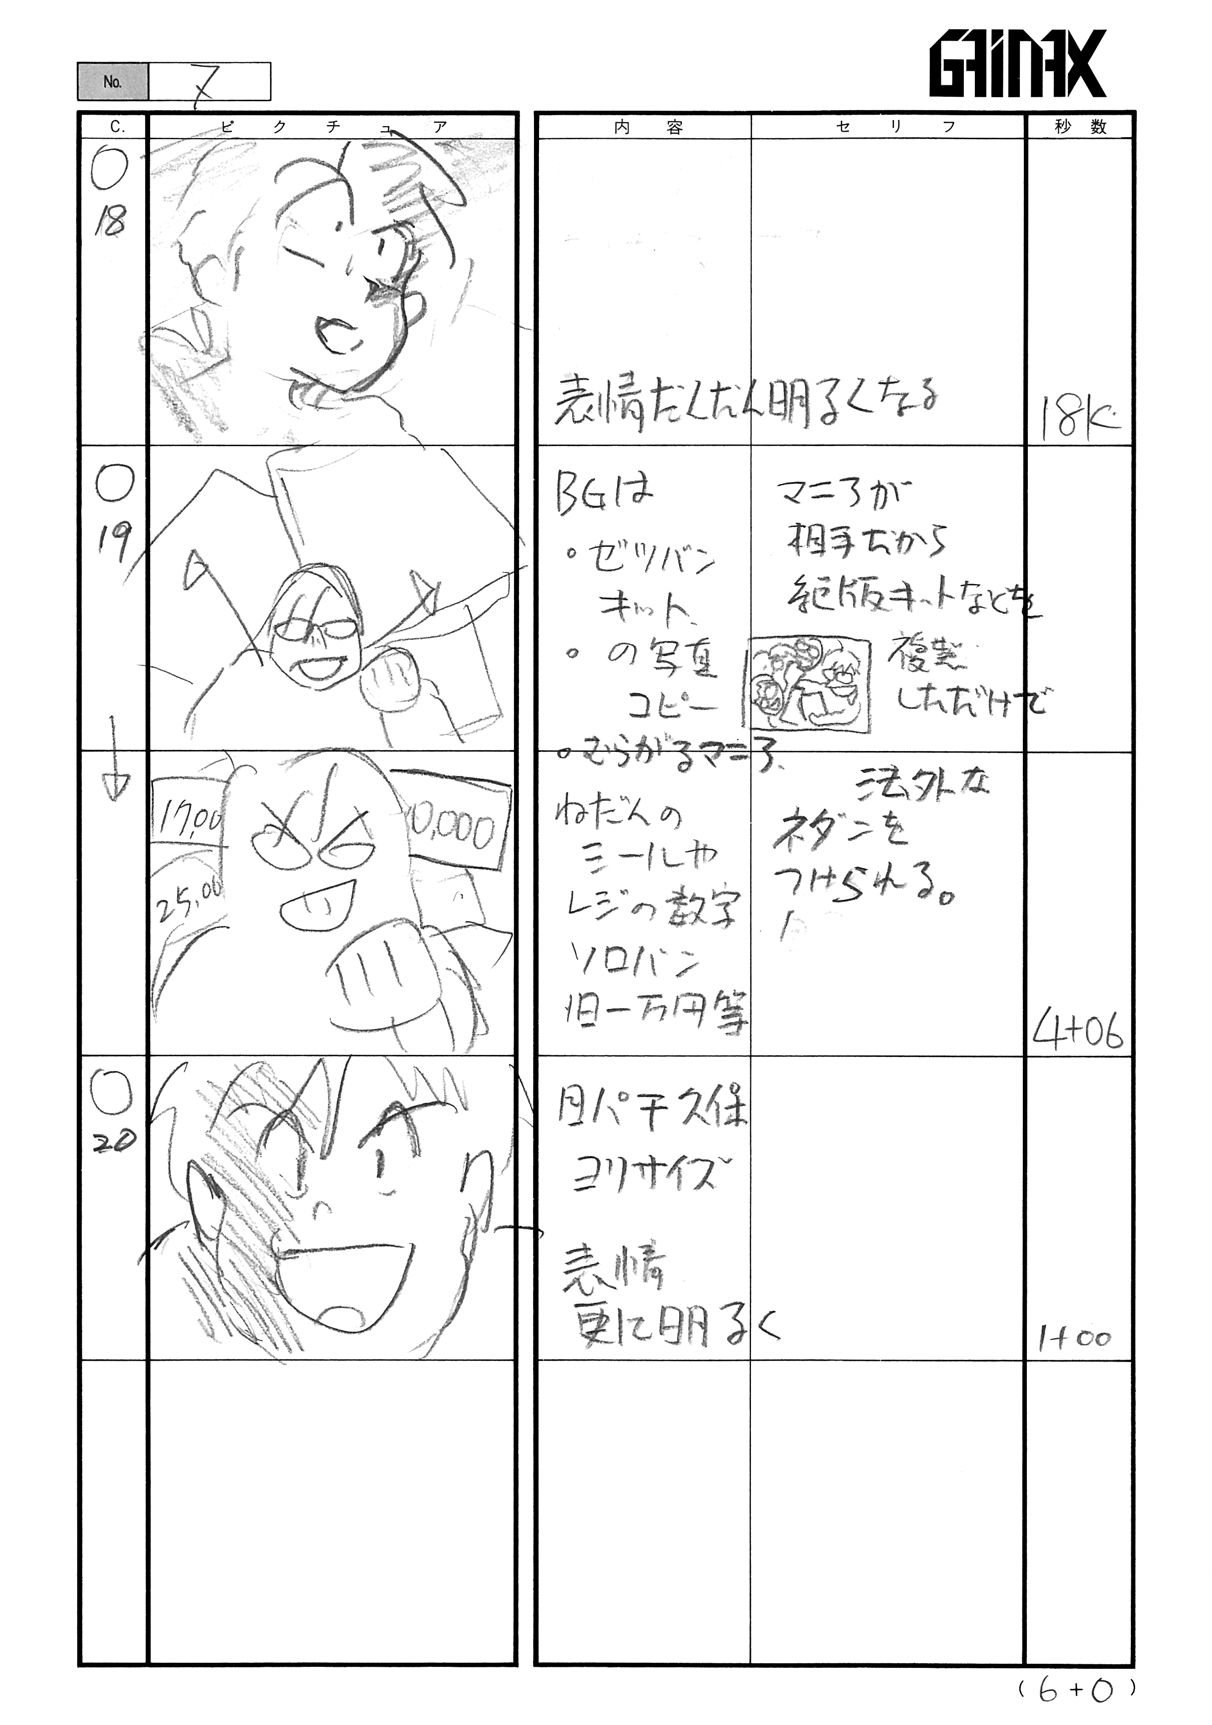 GAINAX
No. 7
C. ピクチュア 内容 セリフ 秒数
18
表情だんだん明るくなる
18K
19
BGは
・ゼツバン
キット
・の写真
コピー
・むらがるマニア
マニアが
相手だから
絶版キットなどを
複製
しただけで
17,00
0,000
25,00
ねだんの
シールや
レジの数字
ソロバン
旧一万円等
法外な
ネダンを
つけられる。
4+06
20
目パチ久保
ヨリサイズ
表情
更に明るく
1+00
(6+0)